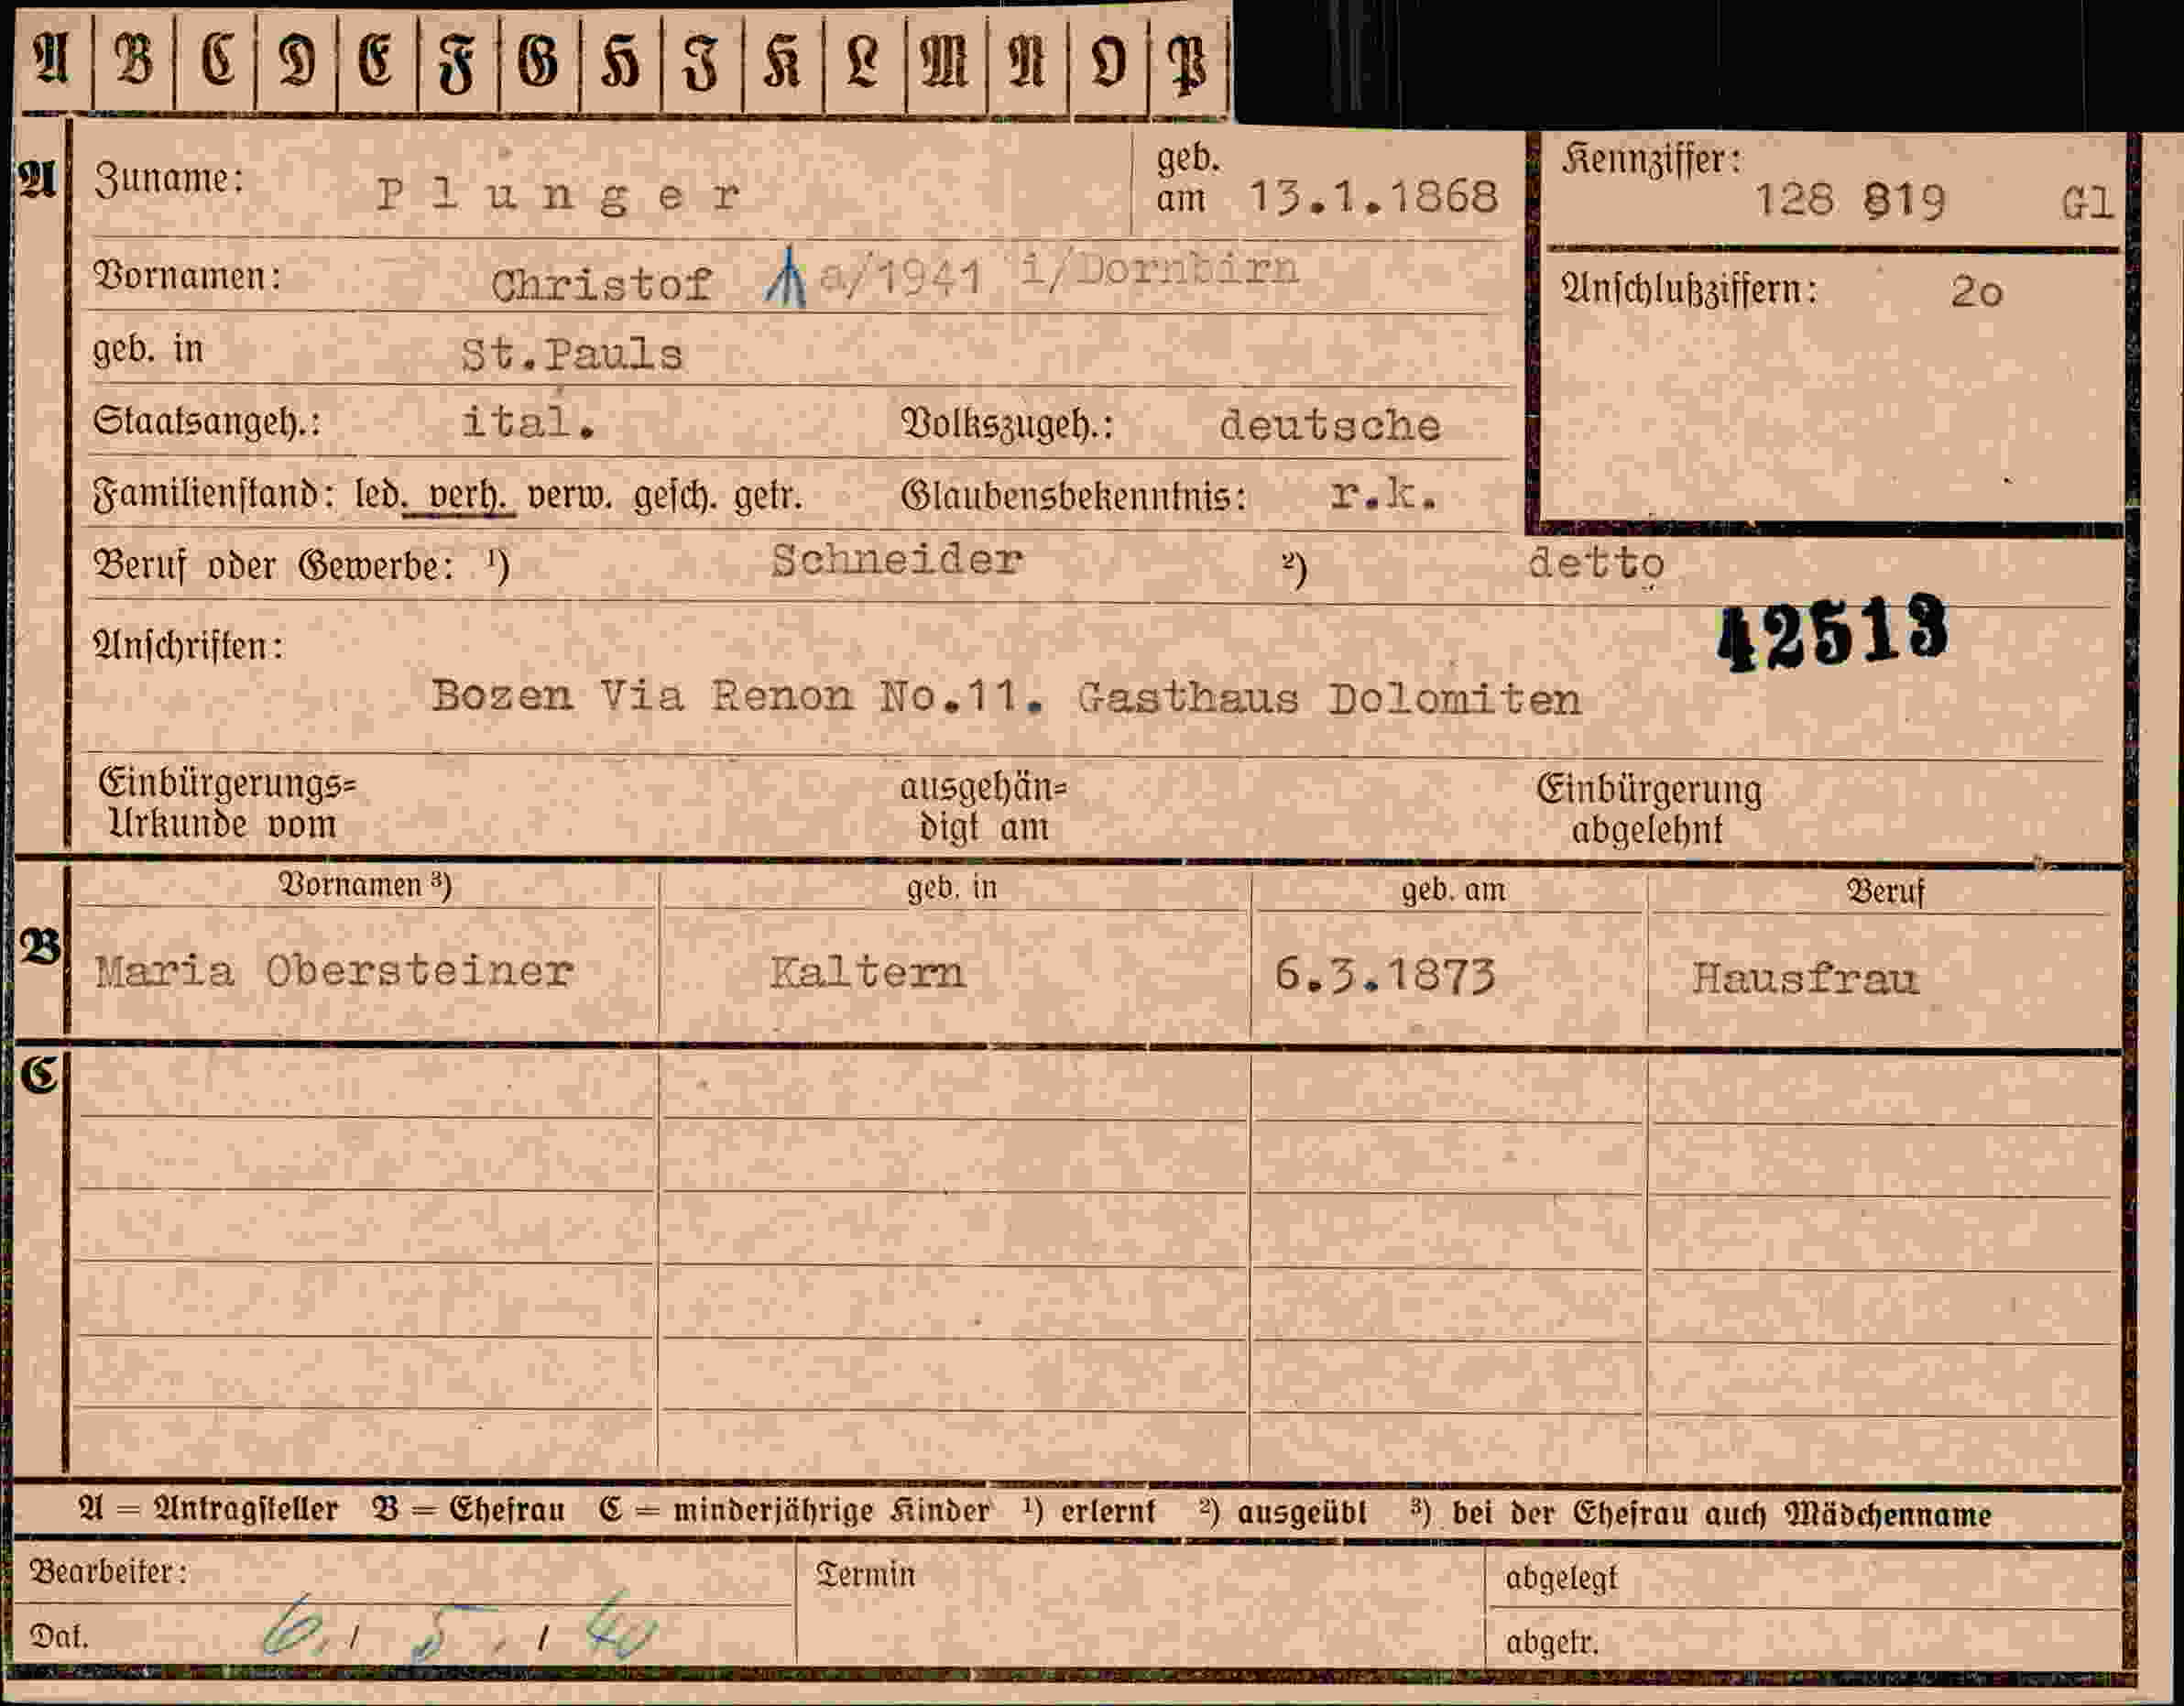 A B C D E F G H I K L M N O P
A Zuname: Plunger geb. am 13.1.1868 Kennziffer: 128 819 Gl
Vornamen: Christof a/1941 i/Dornbirn Anschlußziffern: 2o
geb. in St.Pauls
Staatsangeh.: ital. Volkszugeh.: deutsche
Familienstand: led. verh. verw. gesch. getr. Glaubensbekenntnis: r.k.
Beruf oder Gewerbe: ¹) Schneider ²) detto
42513
Anschriften:
Bozen Via Renon No.11. Gasthaus Dolomiten
Einbürgerungs= ausgehän= Einbürgerung
Urkunde vom digt am abgelehnt
Vornamen ³) geb. in geb. am Beruf
B Maria Obersteiner Kaltern 6.3.1873 Hausfrau
C
A = Antragsteller B = Ehefrau C = minderjährige Kinder ¹) erlernt ²) ausgeübt ³) bei der Ehefrau auch Mädchenname
Bearbeiter: Termin abgelegt
Dat. 6. / 5. / 40 abgetr.